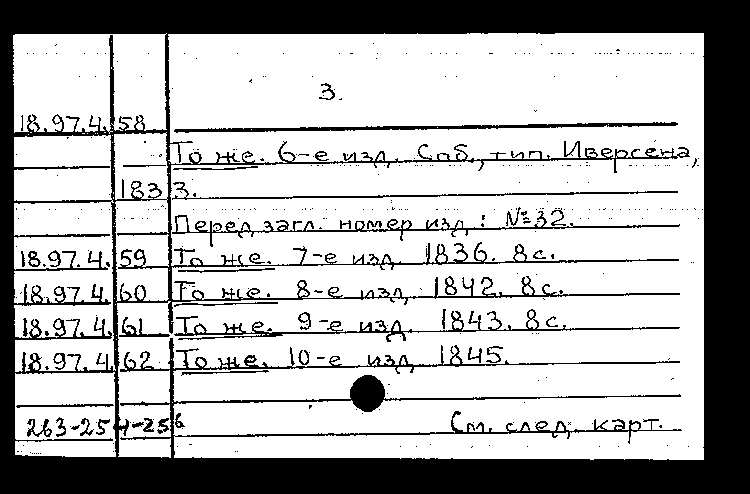 3.
18.97.4.58
То же. 6-е изд. Спб., тип. Иверсена,
1833.
Перед загл. номер изд.: №32.
18.97.4.59 То же. 7-е изд. 1836. 8с.
18.97.4.60 То же. 8-е изд. 1842. 8с.
18.97.4.61 То же. 9-е изд. 1843. 8с.
18.97.4.62 То же. 10-е изд. 1845.
263-254-256 См. след. карт.